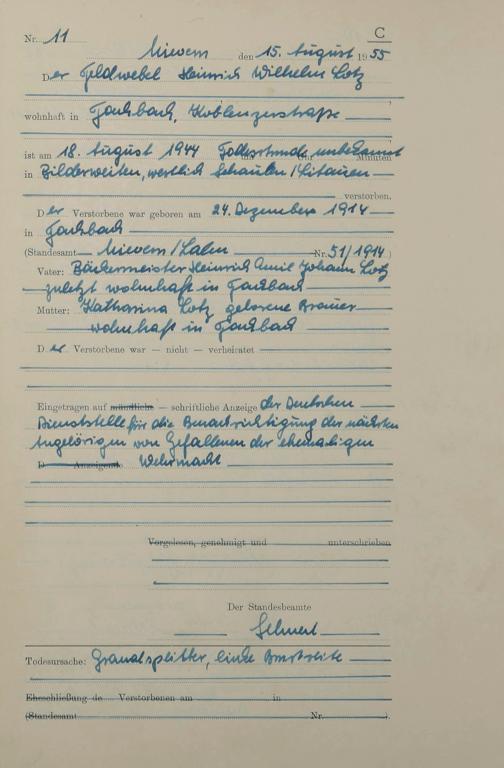 C
Nr. 11
Nievern den 15. August 1955
Der Feldwebel Heinrich Wilhelm Lotz
wohnhaft in Fachbach, Koblenzerstraße
ist am 18. August 1944 Todesstunde unbekannt Uhr Minuten
in Bilderweiten, westlich Schaulen/Litauen
verstorben.
Der Verstorbene war geboren am 24. Dezember 1914
in Fachbach
(Standesamt Nievern/Lahn Nr. 51/1914)
Vater: Bäckermeister Heinrich Emil Johann Lotz
zuletzt wohnhaft in Fachbach
Mutter: Katharina Lotz geborene Brauer
wohnhaft in Fachbach
Der Verstorbene war — nicht — verheiratet
Eingetragen auf mündliche — schriftliche Anzeige der Deutschen
Dienststelle für die Benachrichtigung der nächsten
Angehörigen von Gefallenen der ehemaligen
D Anzeigende Wehrmacht
Vorgelesen, genehmigt und unterschrieben
Der Standesbeamte
Todesursache: Granatsplitter, linke Brustseite
Eheschließung de Verstorbenen am in
(Standesamt Nr. ).